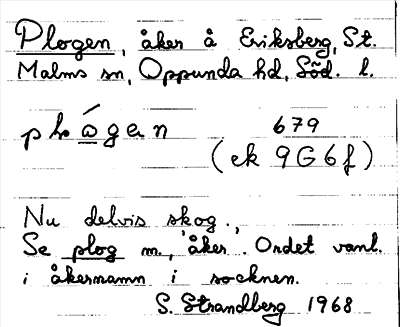 Plogen, åker å Eriksberg, St.
Malms sn, Oppunda hd, Söd. l.
plo̲gen 679
(ek 9G6f)
Nu delvis skog.,
Se plog m., åker. Ordet vanl.
i åkernamn i socknen.
S. Strandberg 1968